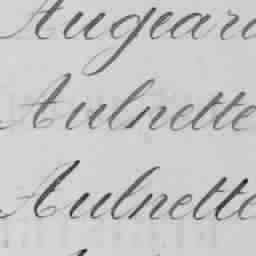 Augeard
Aulnette
Aulnette